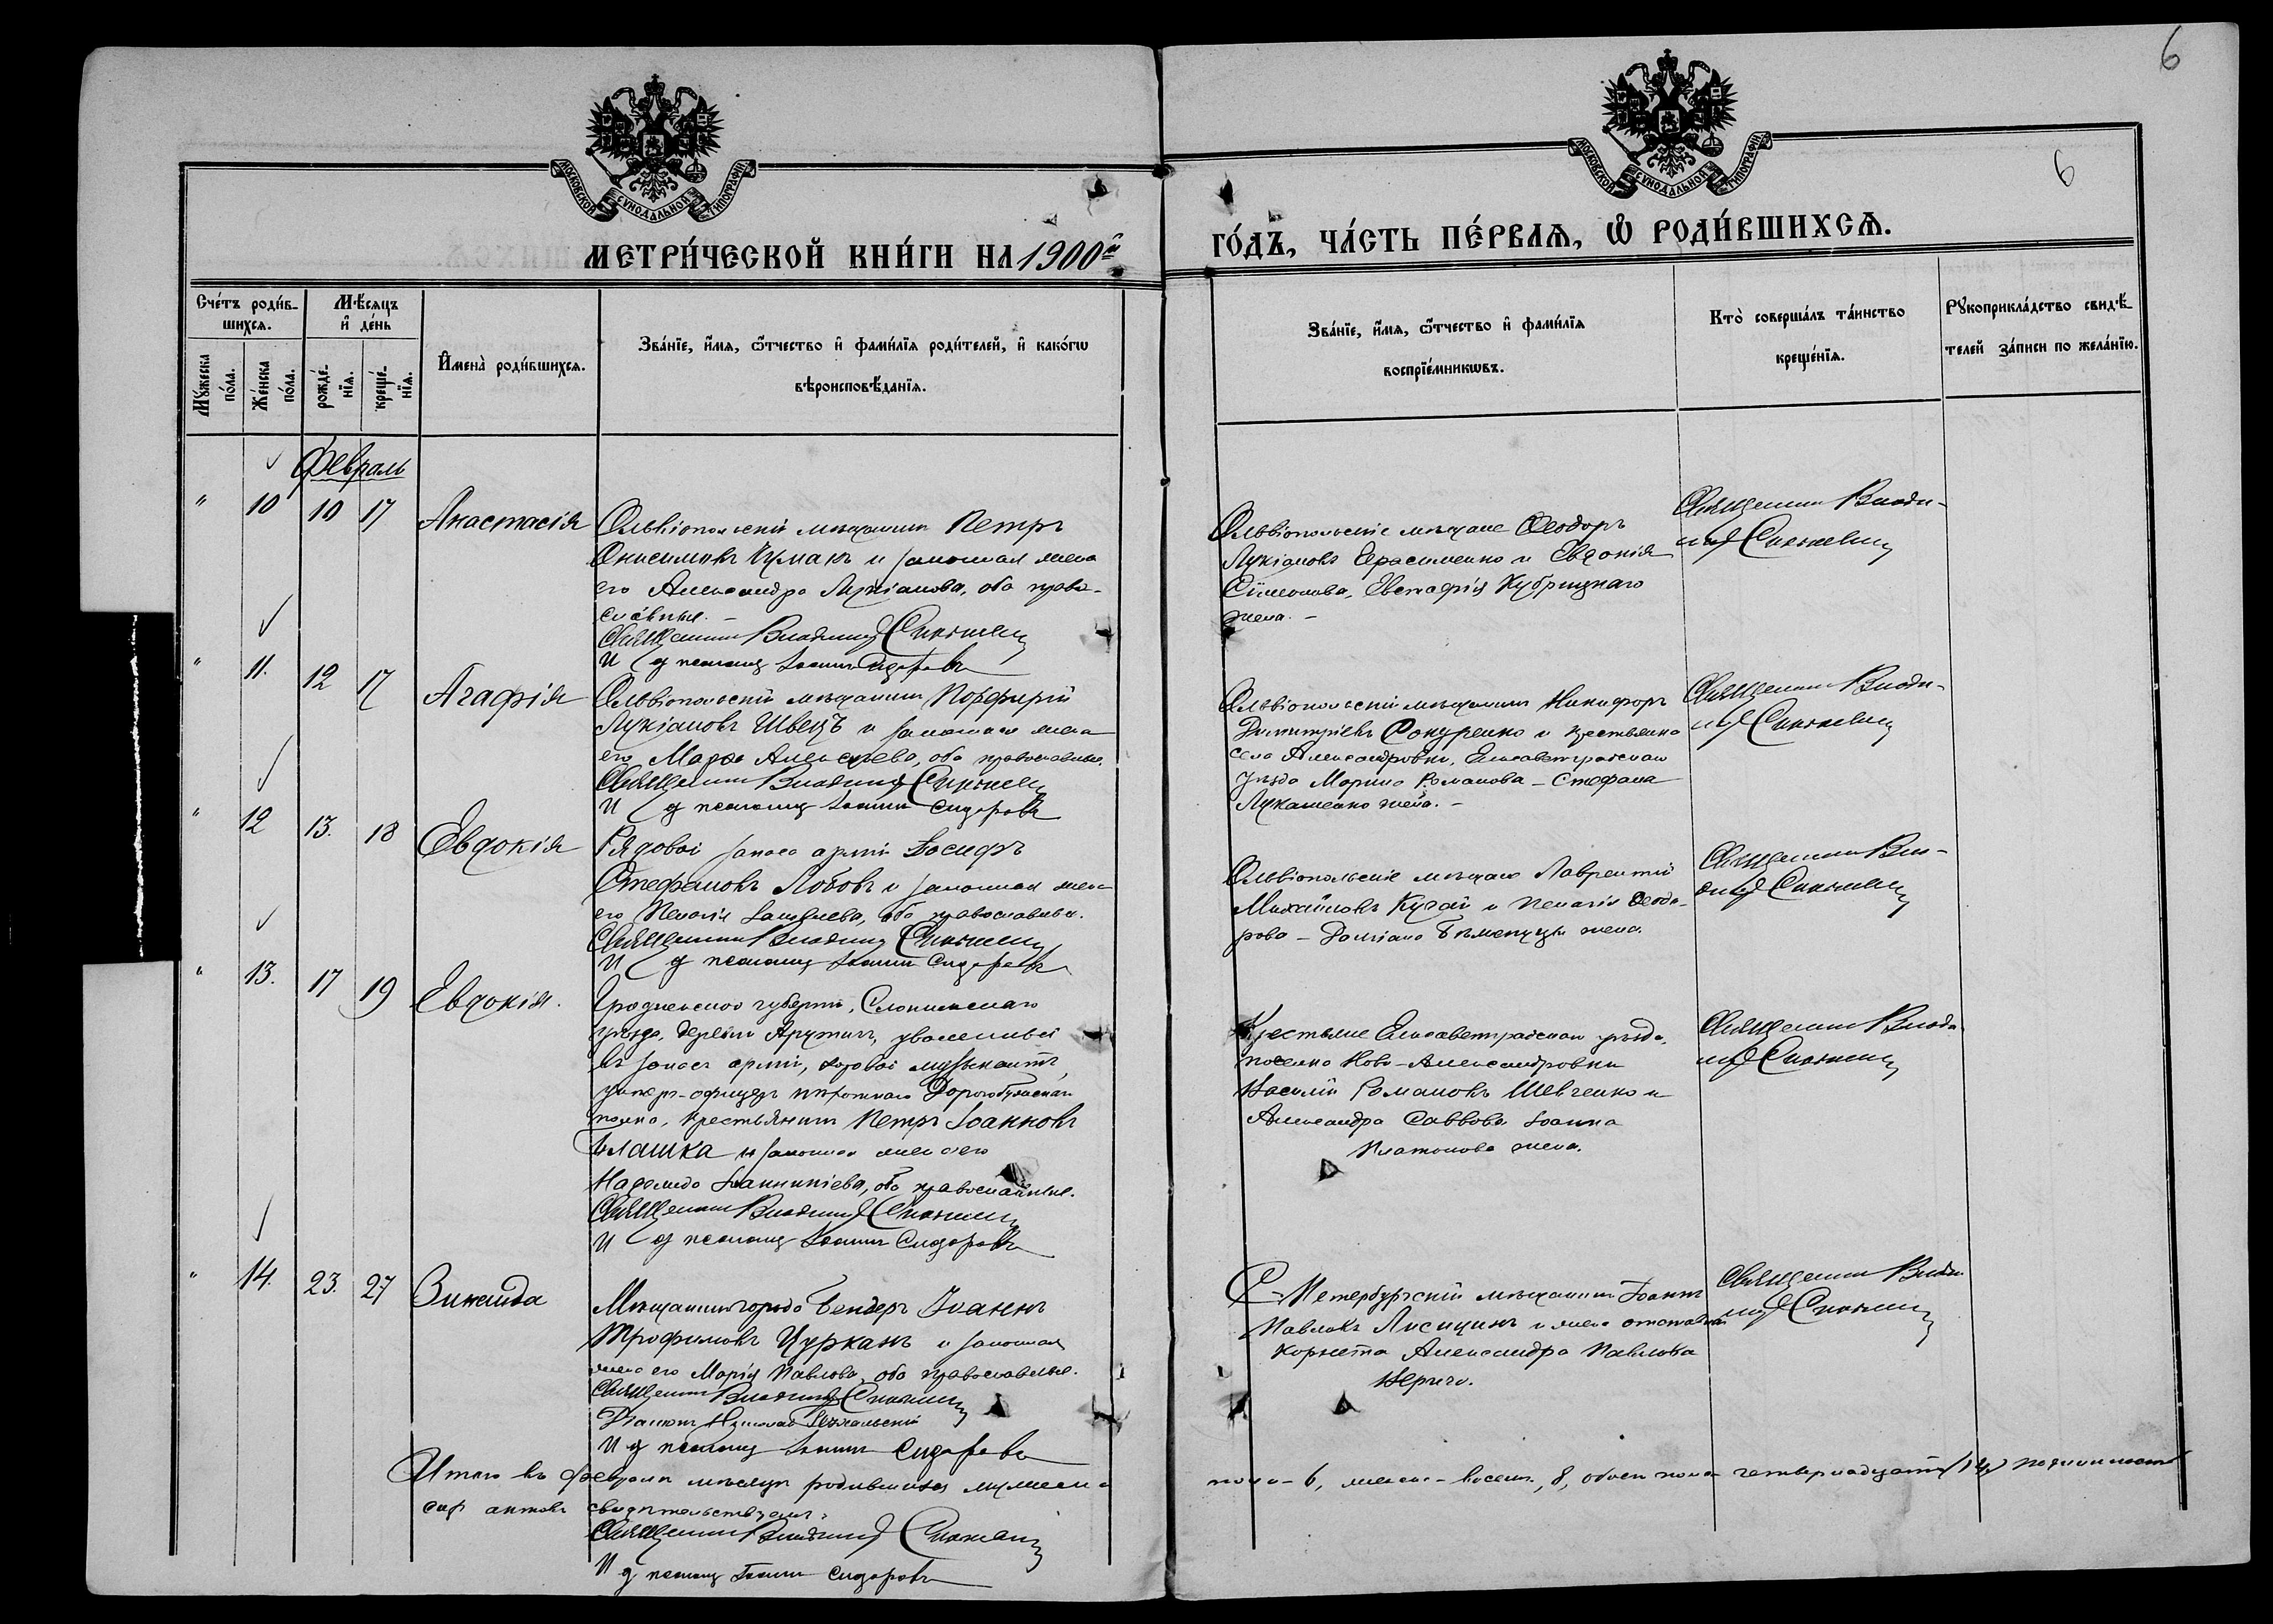 6
6
МОСКОВСКОЙ СѴНОДАЛЬНОЙ ТИПОГРАФІИ
МОСКОВСКОЙ СѴНОДАЛЬНОЙ ТИПОГРАФІИ
МЕТРИ́ЧЕСКОЙ КНИ́ГИ НА 1900й
ГО́ДЪ, ЧА́СТЬ ПЕ́РВАѦ, Ѡ РОДИ́ВШИХСѦ.
Сче́тъ роди́в-
шихсѧ.
Мꙋ́жеска по́ла.
Же́нска по́ла.
Мѣ́сѧцъ
и҆ де́нь
рожде́-нїѧ.
креще́-нїѧ.
И҆мена̀ роди́вшихсѧ.
Зва́нїе, и҆́мѧ, ѻ҆́тчество и҆ фами́лїѧ роди́телей, и҆ како́гѡ
вѣроисповѣ́данїѧ.
Зва́нїе, и҆́мѧ, ѻ҆́тчество и҆ фами́лїѧ
воспрїе́мникѡвъ.
Кто̀ соверша́лъ та́инство
креще́нїѧ.
Рꙋкоприкла́дство свидѣ́-
телей за́писи по жела́нїю.
Февраль
" 10 10 17 Анастасія
Ольвіопольскій мѣщанинъ Петръ
Онисимовъ Чумакъ и законная жена
его Александра Лукіанова, оба право-
славные. -
Священникъ Владимір
И д псаломщ Іоаннъ Сидоровъ
Ольвіопольскіе мѣщане Ѳеодоръ
Лукіановъ Герасименко и Евдокія
Сѵмеонова, Евстафія Кубрицкаго
жена. -
Священникъ Влади-
мір
" 11. 12 17 Агафія
Ольвіопольскій мѣщанинъ Порфирій
Лукіановъ Швецъ и законная жена
его Марѳа Алексѣева, оба православные.
Священникъ Владимір
И д псаломщ Іоаннъ Сидоровъ
Ольвіопольскій мѣщанинъ Никифоръ
Димитріевъ и крестьянка
села Александровки, Елисаветградскаго
уѣзда Марина Романова - Стефана
Лукашенко жена. -
Священникъ Влади-
мір
" 12 13. 18 Евдокія
Рядовой запаса арміи Іосифъ
Стефановъ Лобовъ и законная жена
его Пелагія оба православные.
Священникъ Владимір
И д псаломщ Іоаннъ Сидоровъ
Ольвіопольскіе мѣщане Лаврентій
Михайловъ Кугай и Пелагія Ѳеодо-
рова - Даміана жена.
Священникъ Вла-
димір
" 13. 17 19 Евдокія.
Гродненской губерніи, Слонимскаго
уѣзда, деревни уволенный
въ запасъ арміи, рядовой музыкантъ,
унтеръ-офицеръ пѣхотнаго Дорогобужскаго
полка, крестьянинъ Петръ Іоанновъ
Блашка и законная жена его
Надежда оба православные.
Священникъ Владимір
И д псаломщ Іоаннъ Сидоровъ
Крестьяне Елисаветградскаго уѣзда,
поселка Ново-Александровки
Василій Романовъ Шевченко и
Александра Саввова Іоанна
Платонова жена.
Священникъ Влади
мір
" 14. 23. 27 Зинаида
Мѣщанинъ города Бендеръ Іоаннъ
Трофимовъ Цурканъ и законная
жена его Марія Павлова, оба православные.
Священникъ Владимір
Діаконъ Николай
И д псаломщ Іоаннъ Сидоровъ
С.-Петербургскій мѣщанинъ Іоаннъ
Павловъ Лисицинъ и жена отставнаго
корнета Александра Павлова
Священникъ Влади
мір
Итого въ февралѣ мѣсяцѣ родившихся мужеска
пола - 6, женска - восемь, 8, обоего пола четырнадцать (14)
актовъ свидѣтельствуемъ:
Священникъ Владимір
И д псаломщ Іоаннъ Сидоровъ